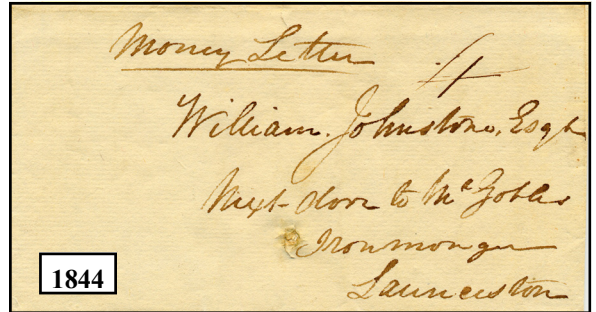 Money Letter
4
William Johnstone, Esqr
Next door to Mr Gobles
Ironmonger
Launceston
1844